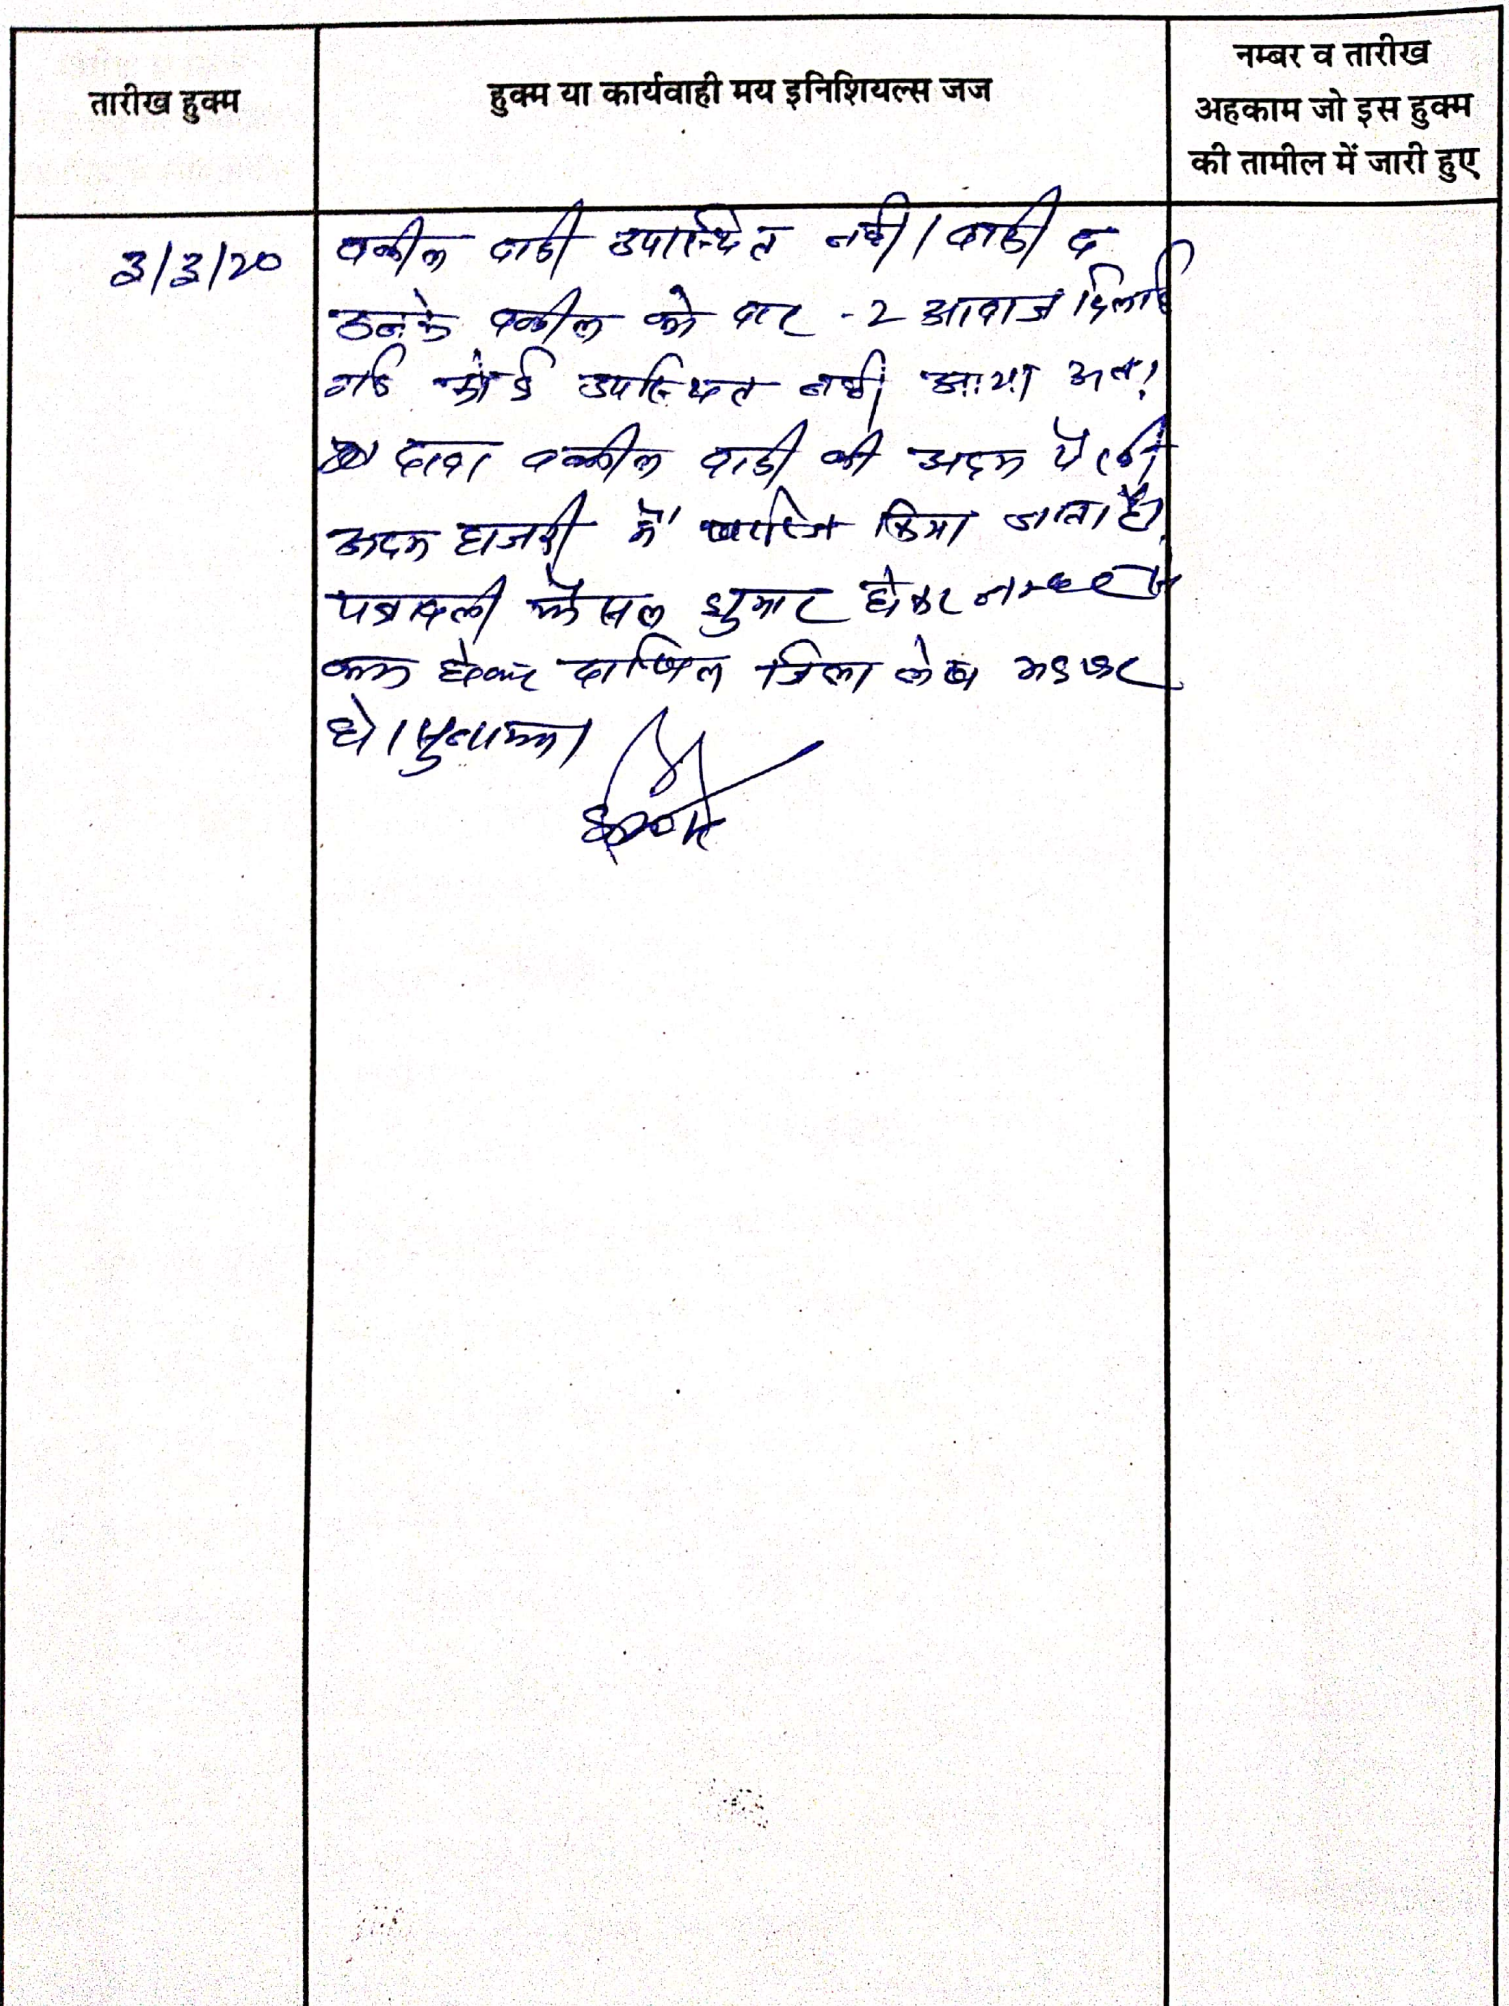 तारीख हुक्म
हुक्म या कार्यवाही मय इनिशियल्स जज
नम्बर व तारीख
अहकाम जो इस हुक्म
की तामील में जारी हुए
3/3/20
वकील वादी उपस्थित नही। वादी व
उनके वकील को बार -2 आवाजं दिलाई
गई कोई उपस्थित नही आया अतः
दावा वकील वादी की अदम पैरवी
अदम हाजरी में खारिज किया जाता है।
पत्रावली फैसल शुमार होकर नम्बर से
कम होकर दाखिल जिला लेख भण्डार
हो।